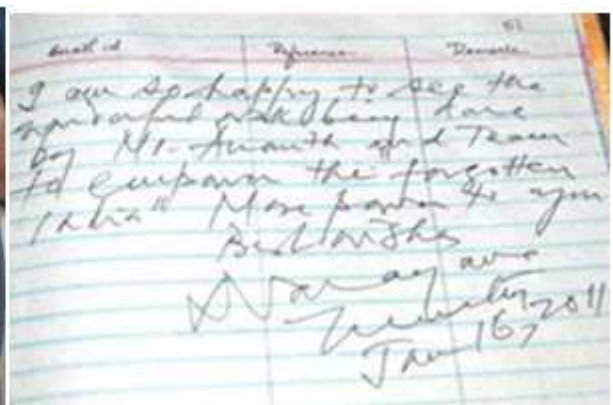 51
Email id Reference Remarks
I am so happy to see the
wonderful work being done
by Mr. Ananth and Team
to empower the forgotten
India" More power to you
Best wishes
Narayana
Murthy
Jan 16, 2011